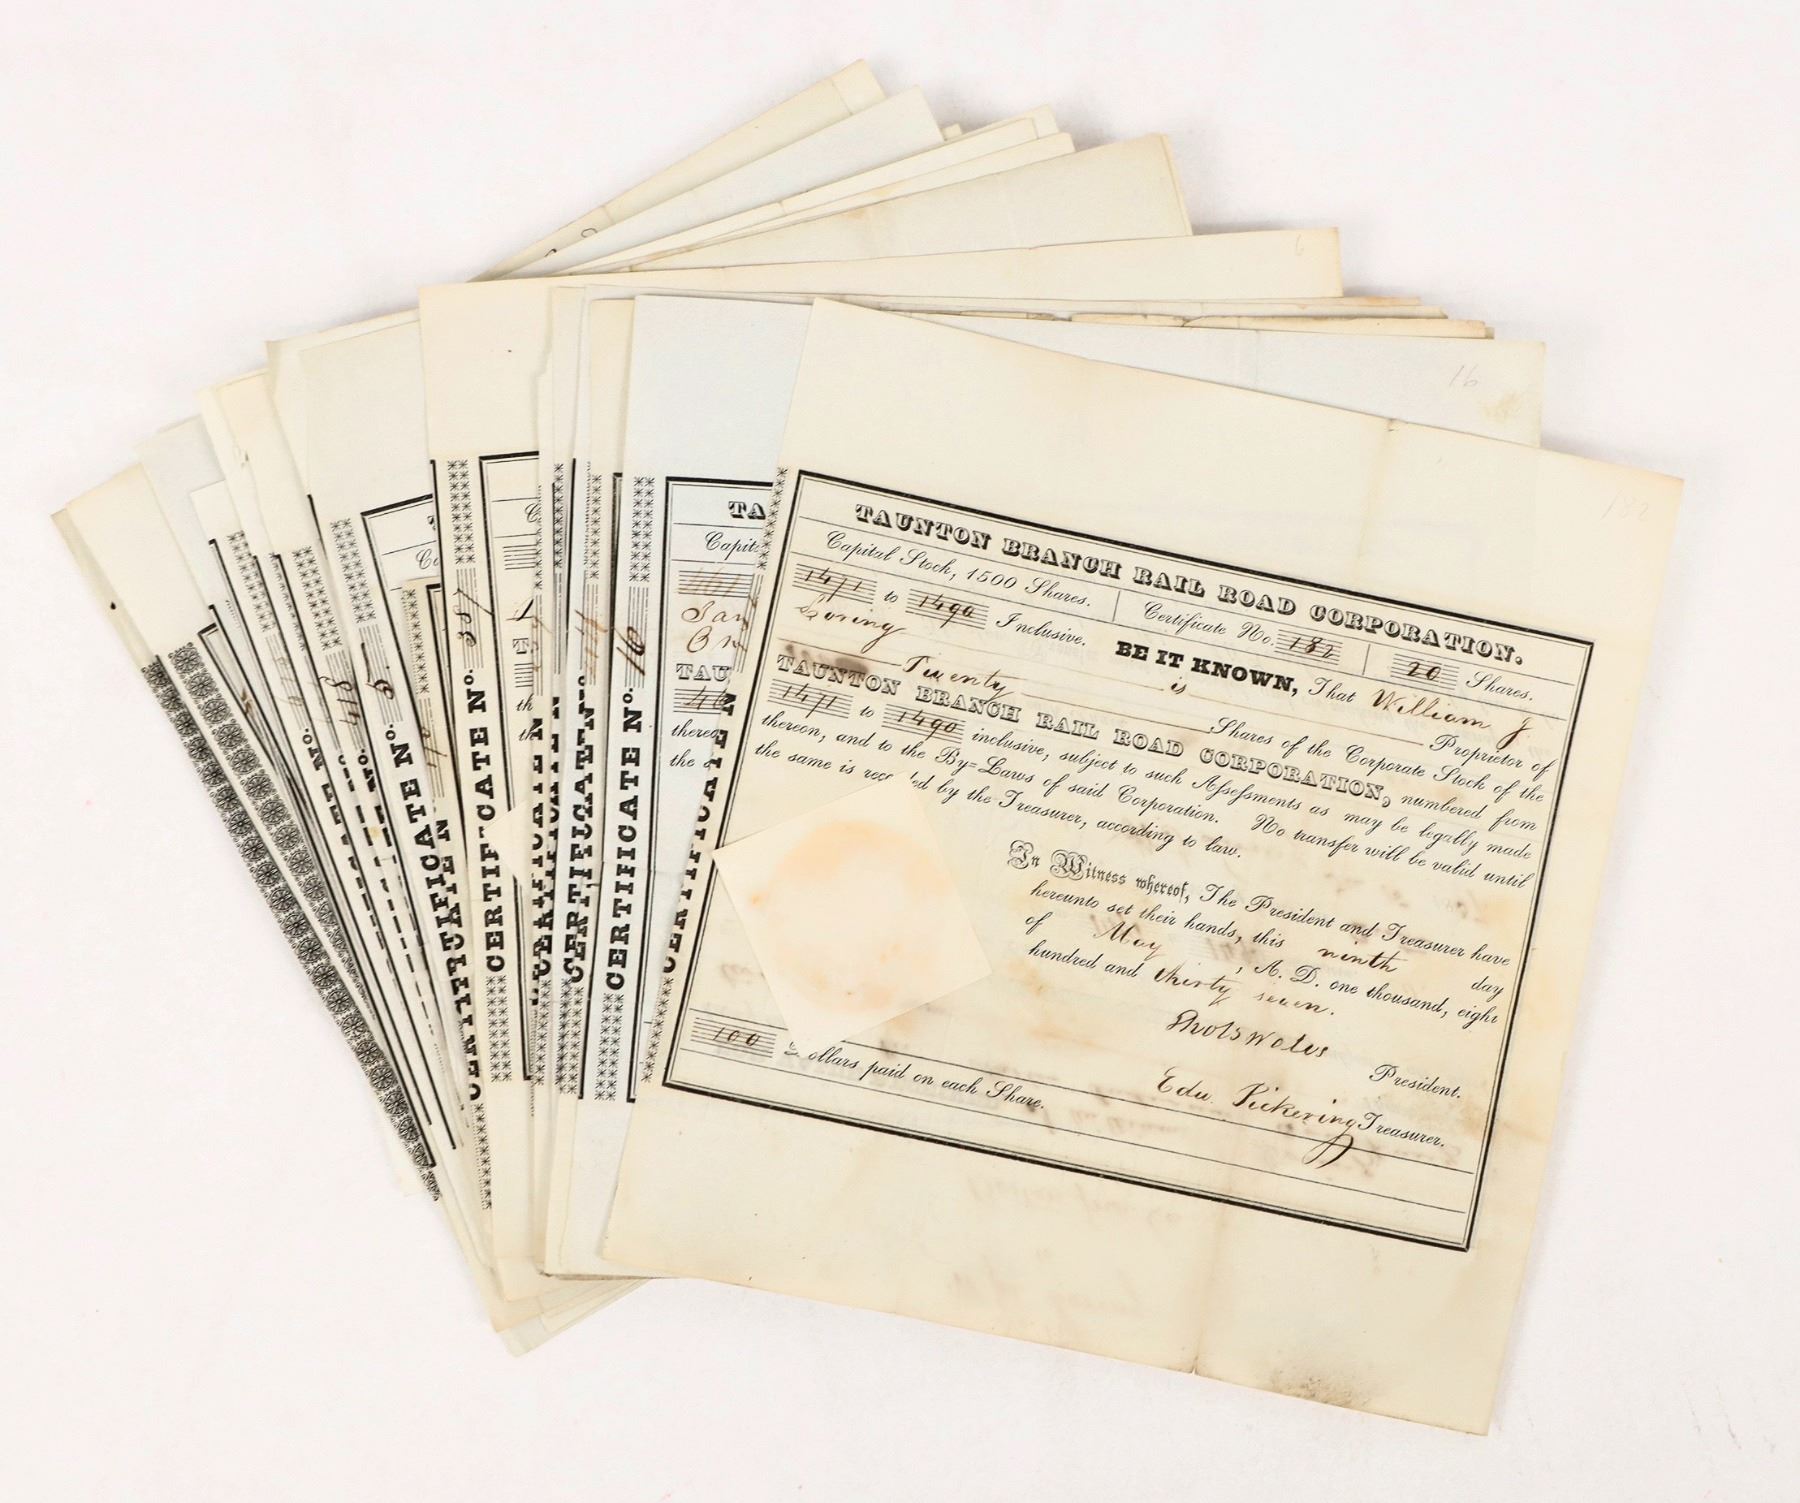 TAUNTON BRANCH RAIL ROAD CORPORATION.
Capital Stock, 1500 Shares. Certificate No. 182 20 Shares.
1471 to 1490 Inclusive. BE IT KNOWN, That William J
Loring is Proprietor of
Twenty Shares of the Corporate Stock of the
TAUNTON BRANCH RAIL ROAD CORPORATION, numbered from
1471 to 1490 inclusive, subject to such Assessments as may be legally made
thereon, and to the By=Laws of said Corporation. No transfer will be valid until
the same is rec ed by the Treasurer, according to law.
In Witness whereof, The President and Treasurer have
hereunto set their hands, this ninth day
of May, A. D. one thousand, eight
hundred and thirty seven.
President.
Edw Pickering Treasurer.
100 Dollars paid on each Share.
182
16
6
TA
Capit
TAU
46
thereo
the
CERTIFICATE N
CERTIFICATE No. 16
CERTIFICATE No.
CERTIFICATE N
CERTIFICATE No. 357
CERTIFICATE N
CERTIFICATE No. 5